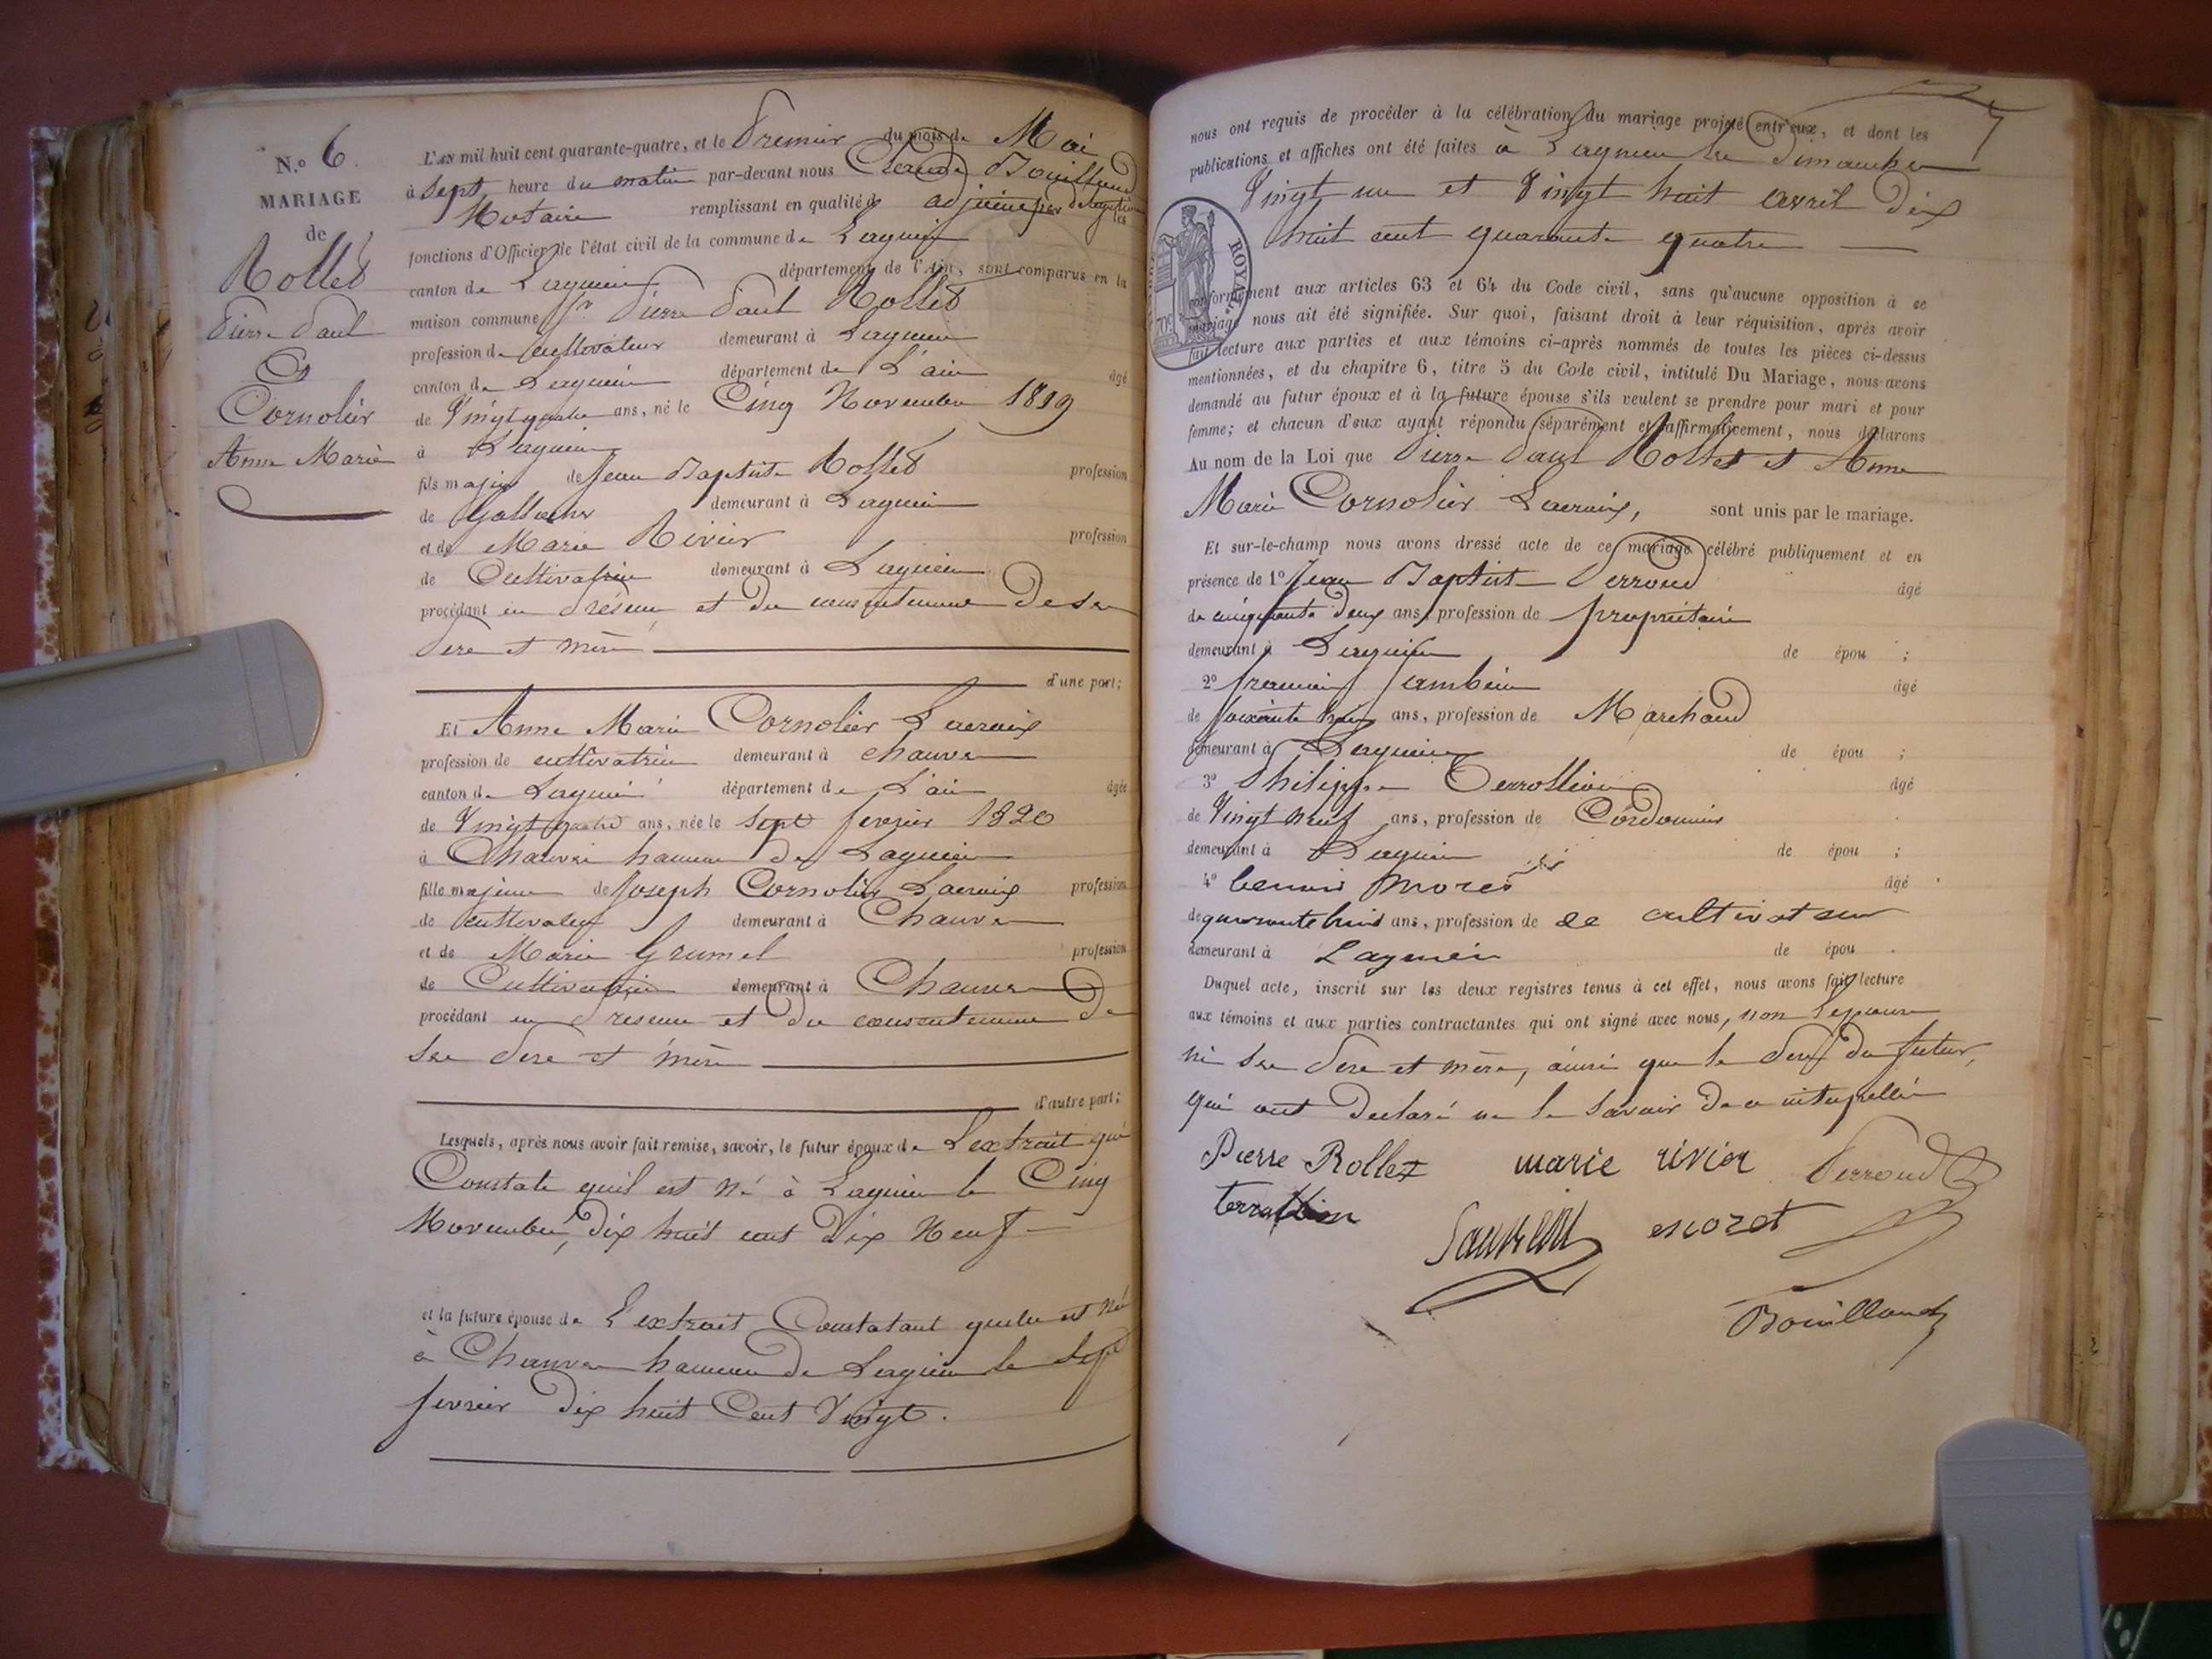 N.º 6.
MARIAGE
de
Rollet
Pierre Paul
Et
Cornolier
Anne Marie
L'AN mil huit cent quarante-quatre, et le Premier du mois de Mai
à Sept heure du matin par-devant nous Claude Bouilloud
Notaire remplissant en qualité d adjoint par délégation les
fonctions d'Officier de l'état civil de la commune de Lagnieu
canton de Lagnieu département de l'Ain, sont comparus en la
maison commune Sr Pierre Paul Rollet
profession de cultivateur demeurant à Lagnieu
canton de Lagnieu département de L'ain âgé
de Vingt quatre ans, né le Cinq Novembre 1819
à Lagnieu
fils majeur de Jean Baptiste Rollet profession
de demeurant à Lagnieu
et de Marie Rivier profession
de Cultivatrice demeurant à Lagnieu
procédant en Présence et du consentement de ses
Père et mère
d'une part;
Et Anne Marie Cornolier Lacroix
profession de cultivatrice demeurant à chauves
canton de Lagnieu département de L'ain âgée
de Vingt quatre ans, née le Sept fevrier 1820
à Chauves hameau de Lagnieu
fille majeure de Joseph Cornolier Lacroix profession
de cultivateur demeurant à Chauves
et de Marie Grumel profession
de Cultivatrice demeurant à Chauves
procédant en Présence et du consentement de
Ses Père et mère
d'autre part;
Lesquels, après nous avoir fait remise, savoir, le futur époux de L'extrait qui
Constate quil est né à Lagnieu le Cinq
Novembre, dix huit cent Dix Neuf
et la future épouse de L'extrait Constatant quelle est née
à Chauves hameau de Lagnieu le Sept
fevrier dix huit Cent Vingt.
7
nous ont requis de procéder à la célébration du mariage projeté entr'eux, et dont les
publications et affiches ont été faites à Lagnieu les Dimanches
Vingt un et Vingt huit avril dix
huit cent quarante quatre
ROYAL
70c
conformément aux articles 63 et 64 du Code civil, sans qu'aucune opposition à ce
mariage nous ait été signifiée. Sur quoi, faisant droit à leur réquisition, après avoir
fait lecture aux parties et aux témoins ci-après nommés de toutes les pièces ci-dessus
mentionnées, et du chapitre 6, titre 5 du Code civil, intitulé Du Mariage, nous avons
demandé au futur époux et à la future épouse s'ils veulent se prendre pour mari et pour
femme; et chacun d'eux ayant répondu séparément et affirmativement, nous déclarons
Au nom de la Loi que Pierre Paul Rollet et Anne
Marie Cornolier Lacroix, sont unis par le mariage.
Et sur-le-champ nous avons dressé acte de ce mariage célébré publiquement et en
présence de 1º Jean Baptiste Perroud âgé
de cinquante deux ans, profession de propriétaire
demeurant à Lagnieu de épou ;
2º françois âgé
de soixante ans, profession de Marchand
demeurant à Lagnieu de épou ;
3º Philippe Terrollion âgé
de Vingt neuf ans, profession de Cordonnier
demeurant à Lagnieu de épou ;
4º benois âgé
de quarante huit ans, profession de de cultivateur
demeurant à Lagnieu de épou .
Duquel acte, inscrit sur les deux registres tenus à cet effet, nous avons fait lecture
aux témoins et aux parties contractantes qui ont signé avec nous, non l'epouse
ni ses Père et mère, ainsi que le Père du futur,
qui ont déclaré ne le Savoir de ce interpellés
Pierre Rollet marie rivier Perroud
terrollion
Bouilloud